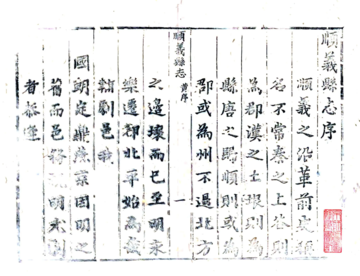 順義縣志序
順義之沿革前史狠
名不當秦之上谷則
為郡漢之土垠則為
縣唐之歸順則或為
郡或為州不過北方
順義縣志 舊序 一
之邊壤而已至明永
樂遷都北平始為畿
輔劇邑我
國朝定鼎燕京因明之
舊而邑
明末
者